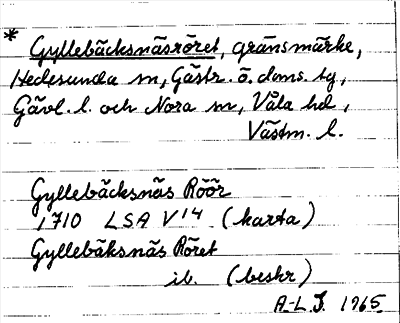 * Gyllebäcksnäsröret, gränsmärke,
Hedesunda sn, Gästr. ö. doms. tg,
Gävl. l. och Nora sn, Våla hd,
Västm. l.
Gyllebäcksnäs Röör
1710 LSA V14 (karta)
Gyllebäksnäs Röret
ib. (beskr)
A-L J. 1965.